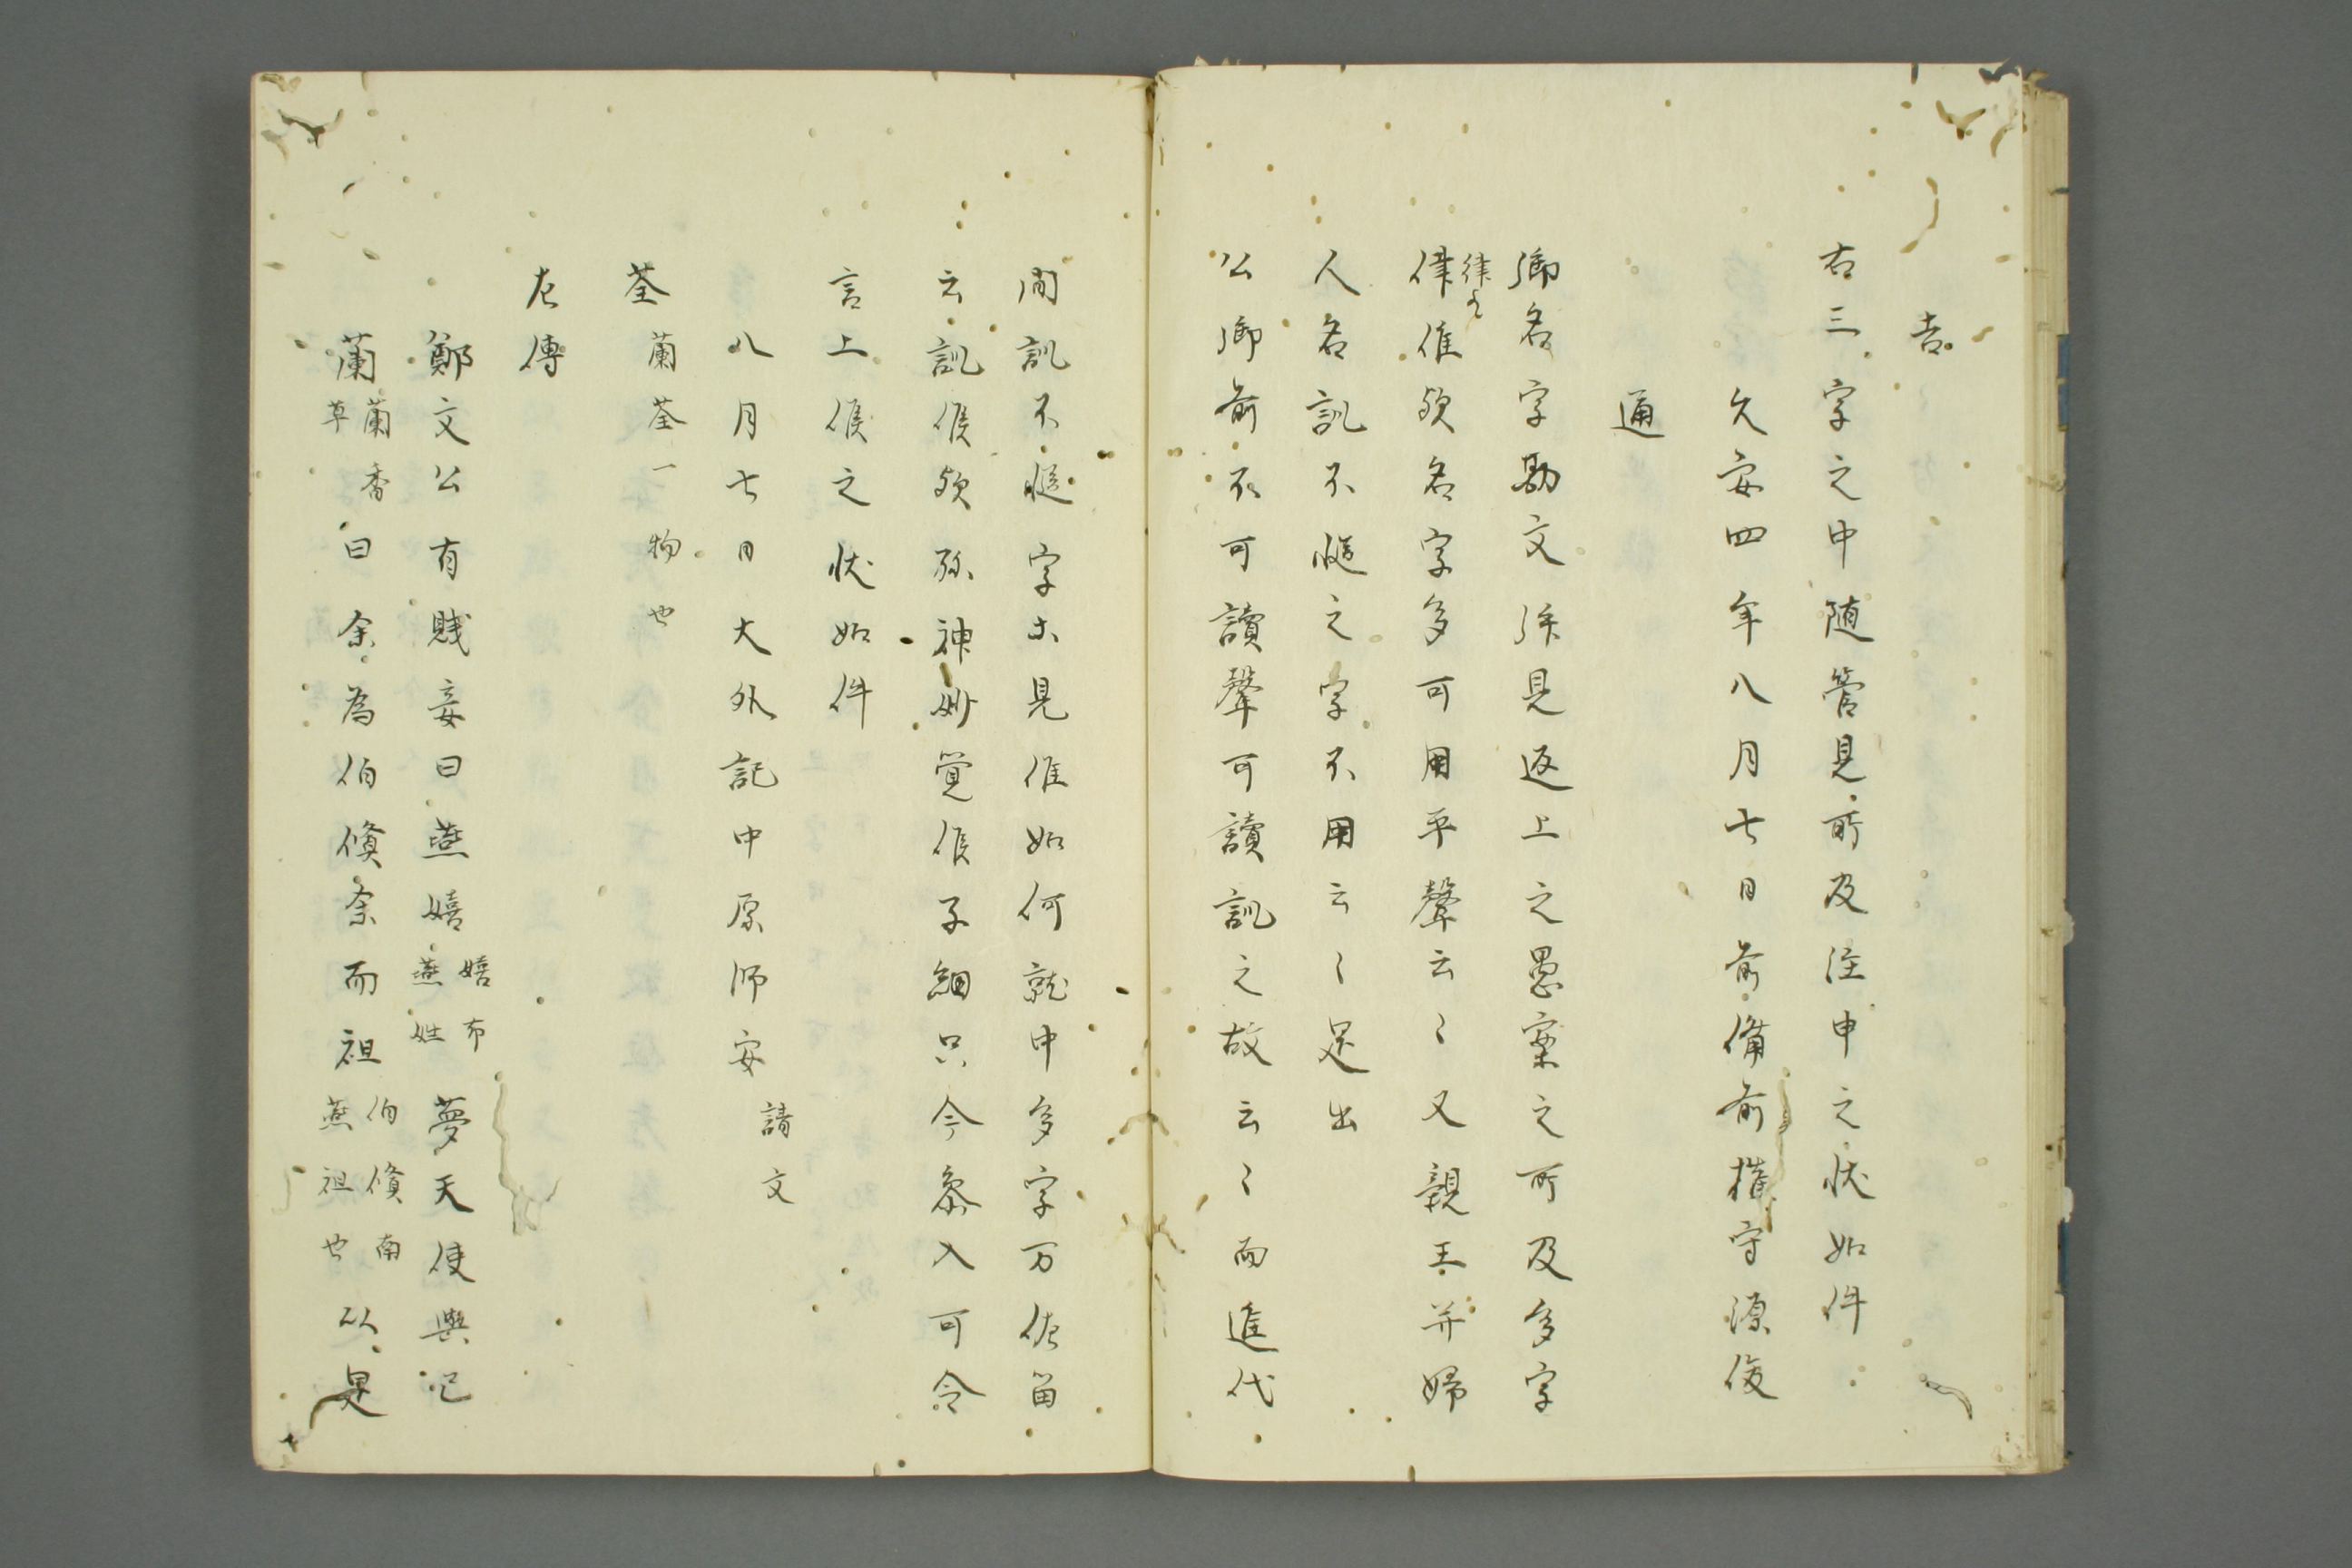 吉
右三字之中随管見所及注申之状如件
久安四年八月七日前備前権守源俊
通
卿名字勘文給見返上之愚案之所及多字
律律是唯欤名字多可用平聲云〻又親王并婦
人名訓不慥之字不用云〻是出
公卿前不可讀聲可讀訓之故云〻而進代
間訓不慥字出見唯如何就中多字万佐留
云訓候欤殊神妙覚候子細只今参入可令
言上候之状如件
八月七日大外記中原師安請文
荃蘭荃一物也
左傳
鄭文公有賤妾曰燕嬉嬉布燕姓夢天使與己
蘭蘭香草曰余為伯儵余而祖伯儵南燕祖也以是